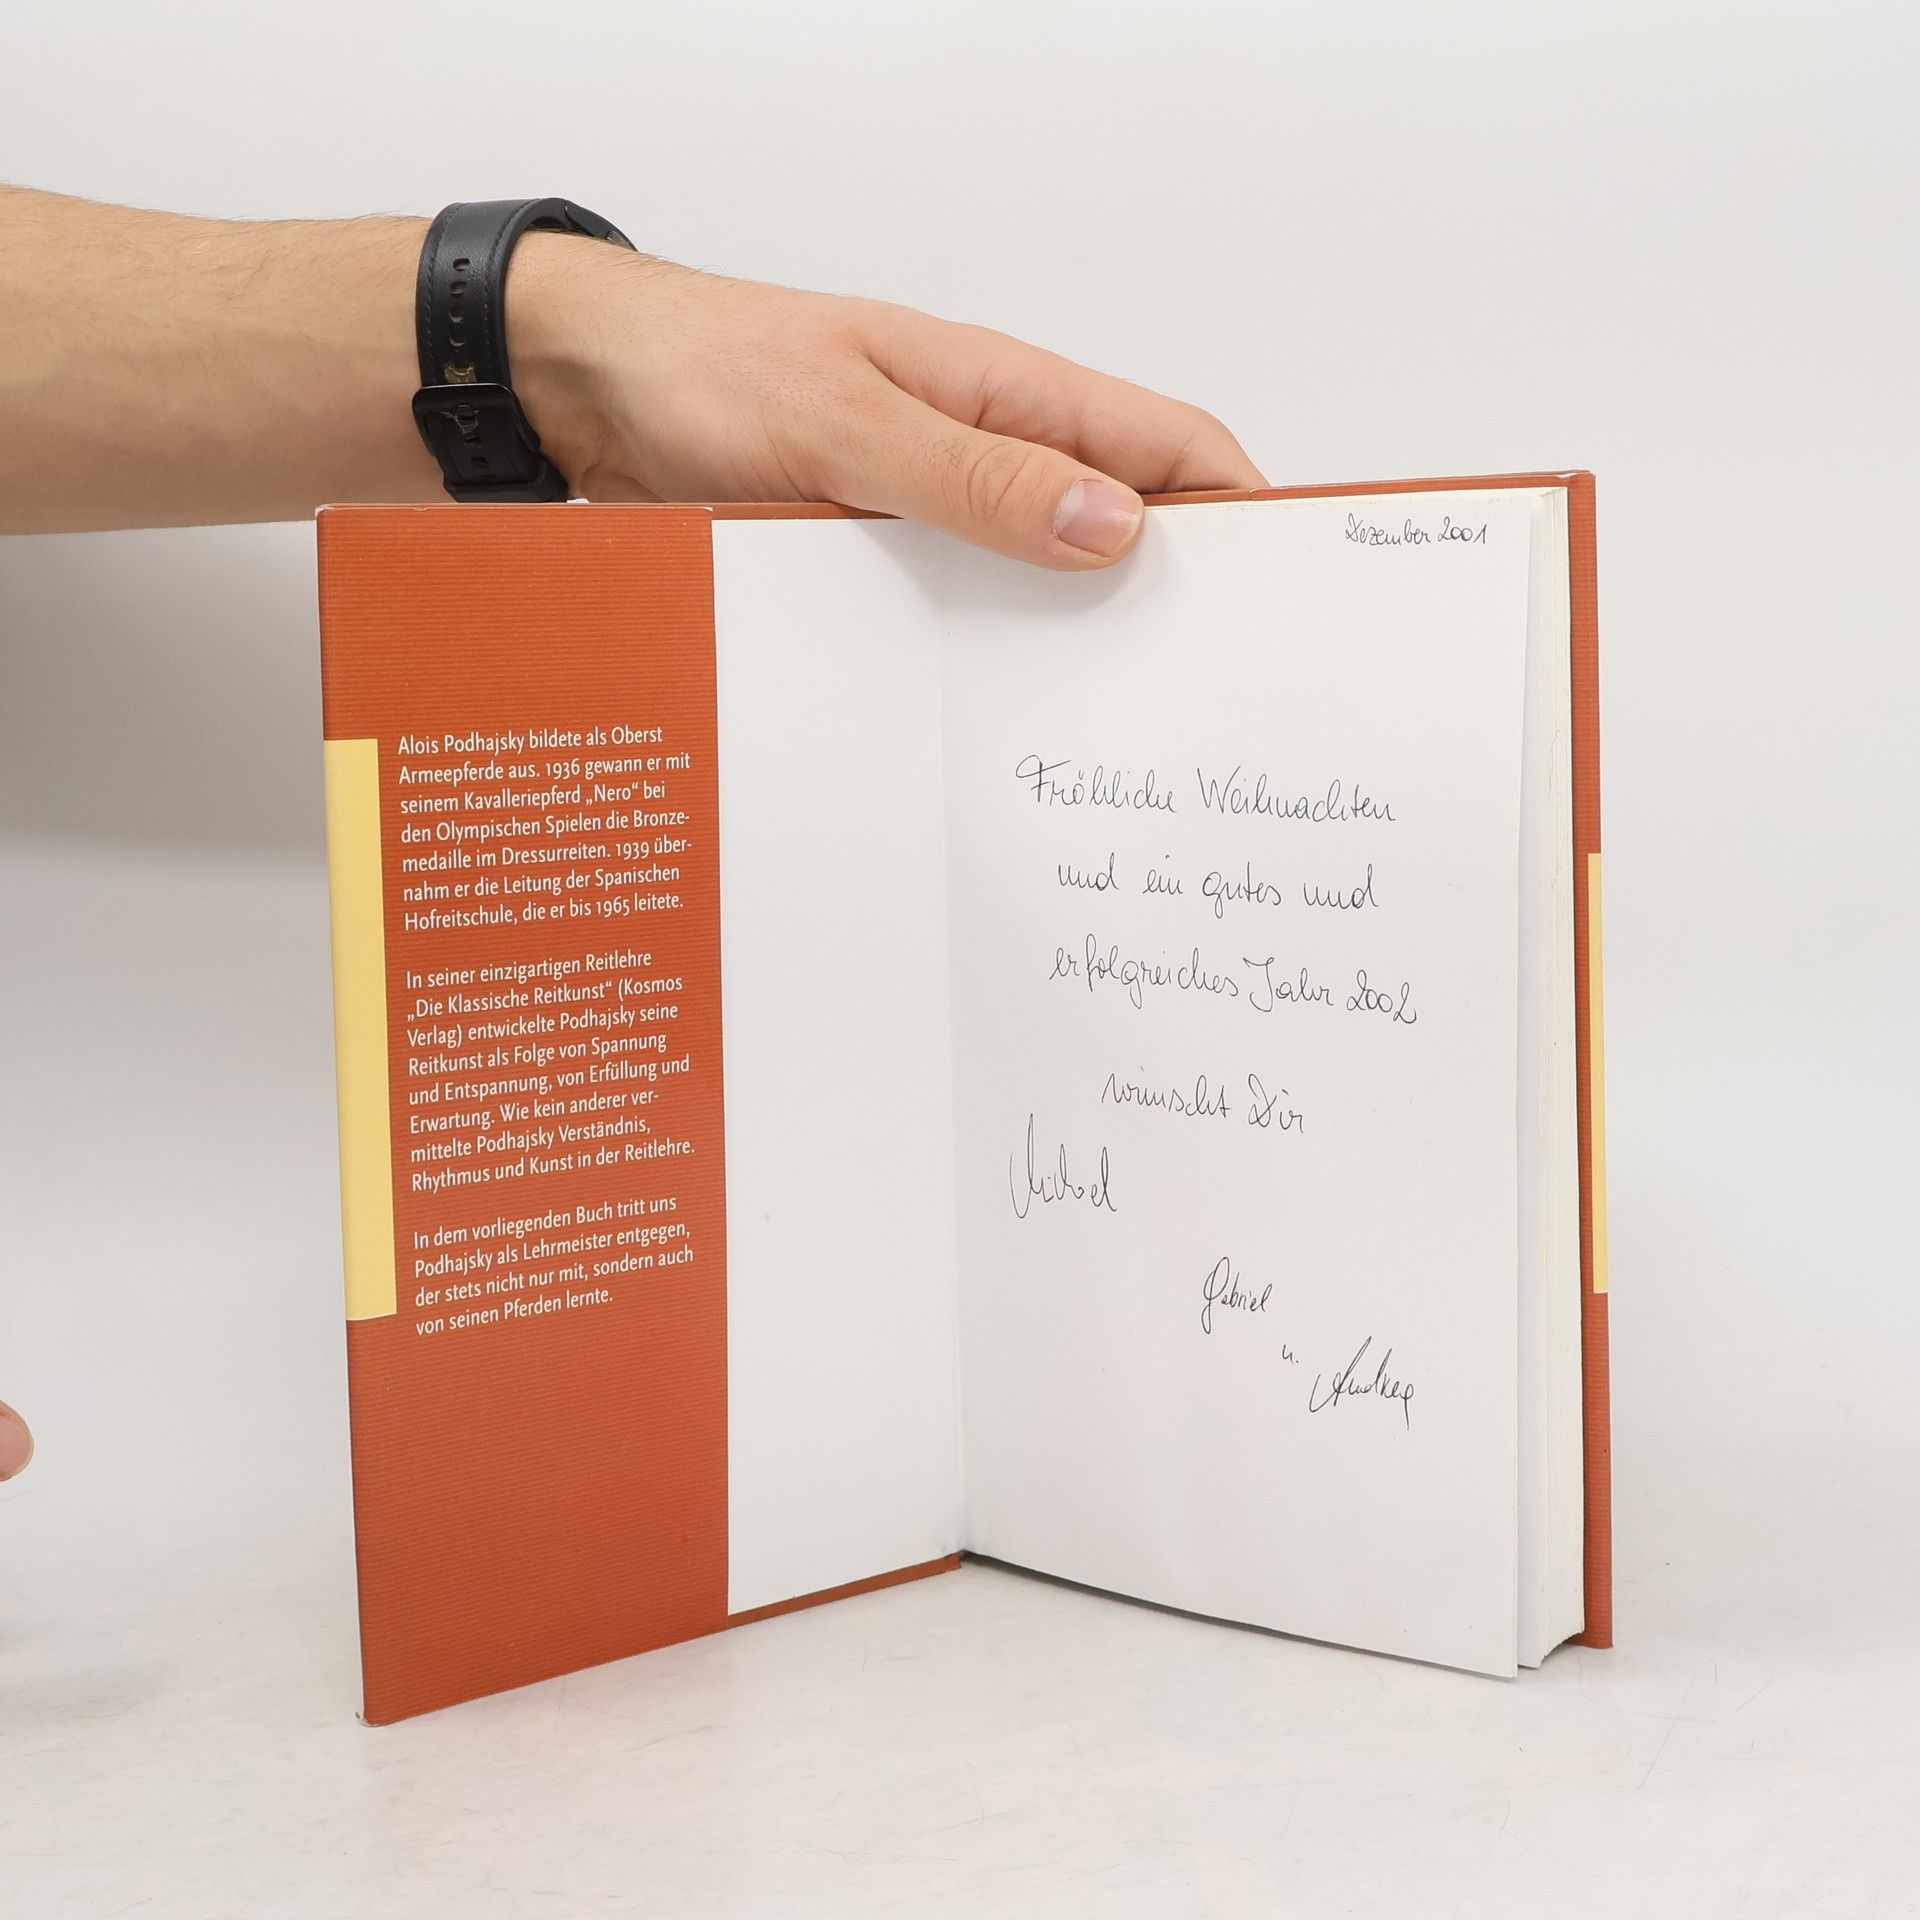 Alois Podhajsky bildete als Oberst
Armeepferde aus. 1936 gewann er mit
seinem Kavalleriepferd „Nero“ bei
den Olympischen Spielen die Bronze-
medaille im Dressurreiten. 1939 über-
nahm er die Leitung der Spanischen
Hofreitschule, die er bis 1965 leitete.
In seiner einzigartigen Reitlehre
„Die Klassische Reitkunst“ (Kosmos
Verlag) entwickelte Podhajsky seine
Reitkunst als Folge von Spannung
und Entspannung, von Erfüllung und
Erwartung. Wie kein anderer ver-
mittelte Podhajsky Verständnis,
Rhythmus und Kunst in der Reitlehre.
In dem vorliegenden Buch tritt uns
Podhajsky als Lehrmeister entgegen,
der stets nicht nur mit, sondern auch
von seinen Pferden lernte.
Dezember 2001
Fröhliche Weihnachten
und ein gutes und
erfolgreiches Jahr 2002
wünscht Dir
Michael
Gabriel
u.
Andrea